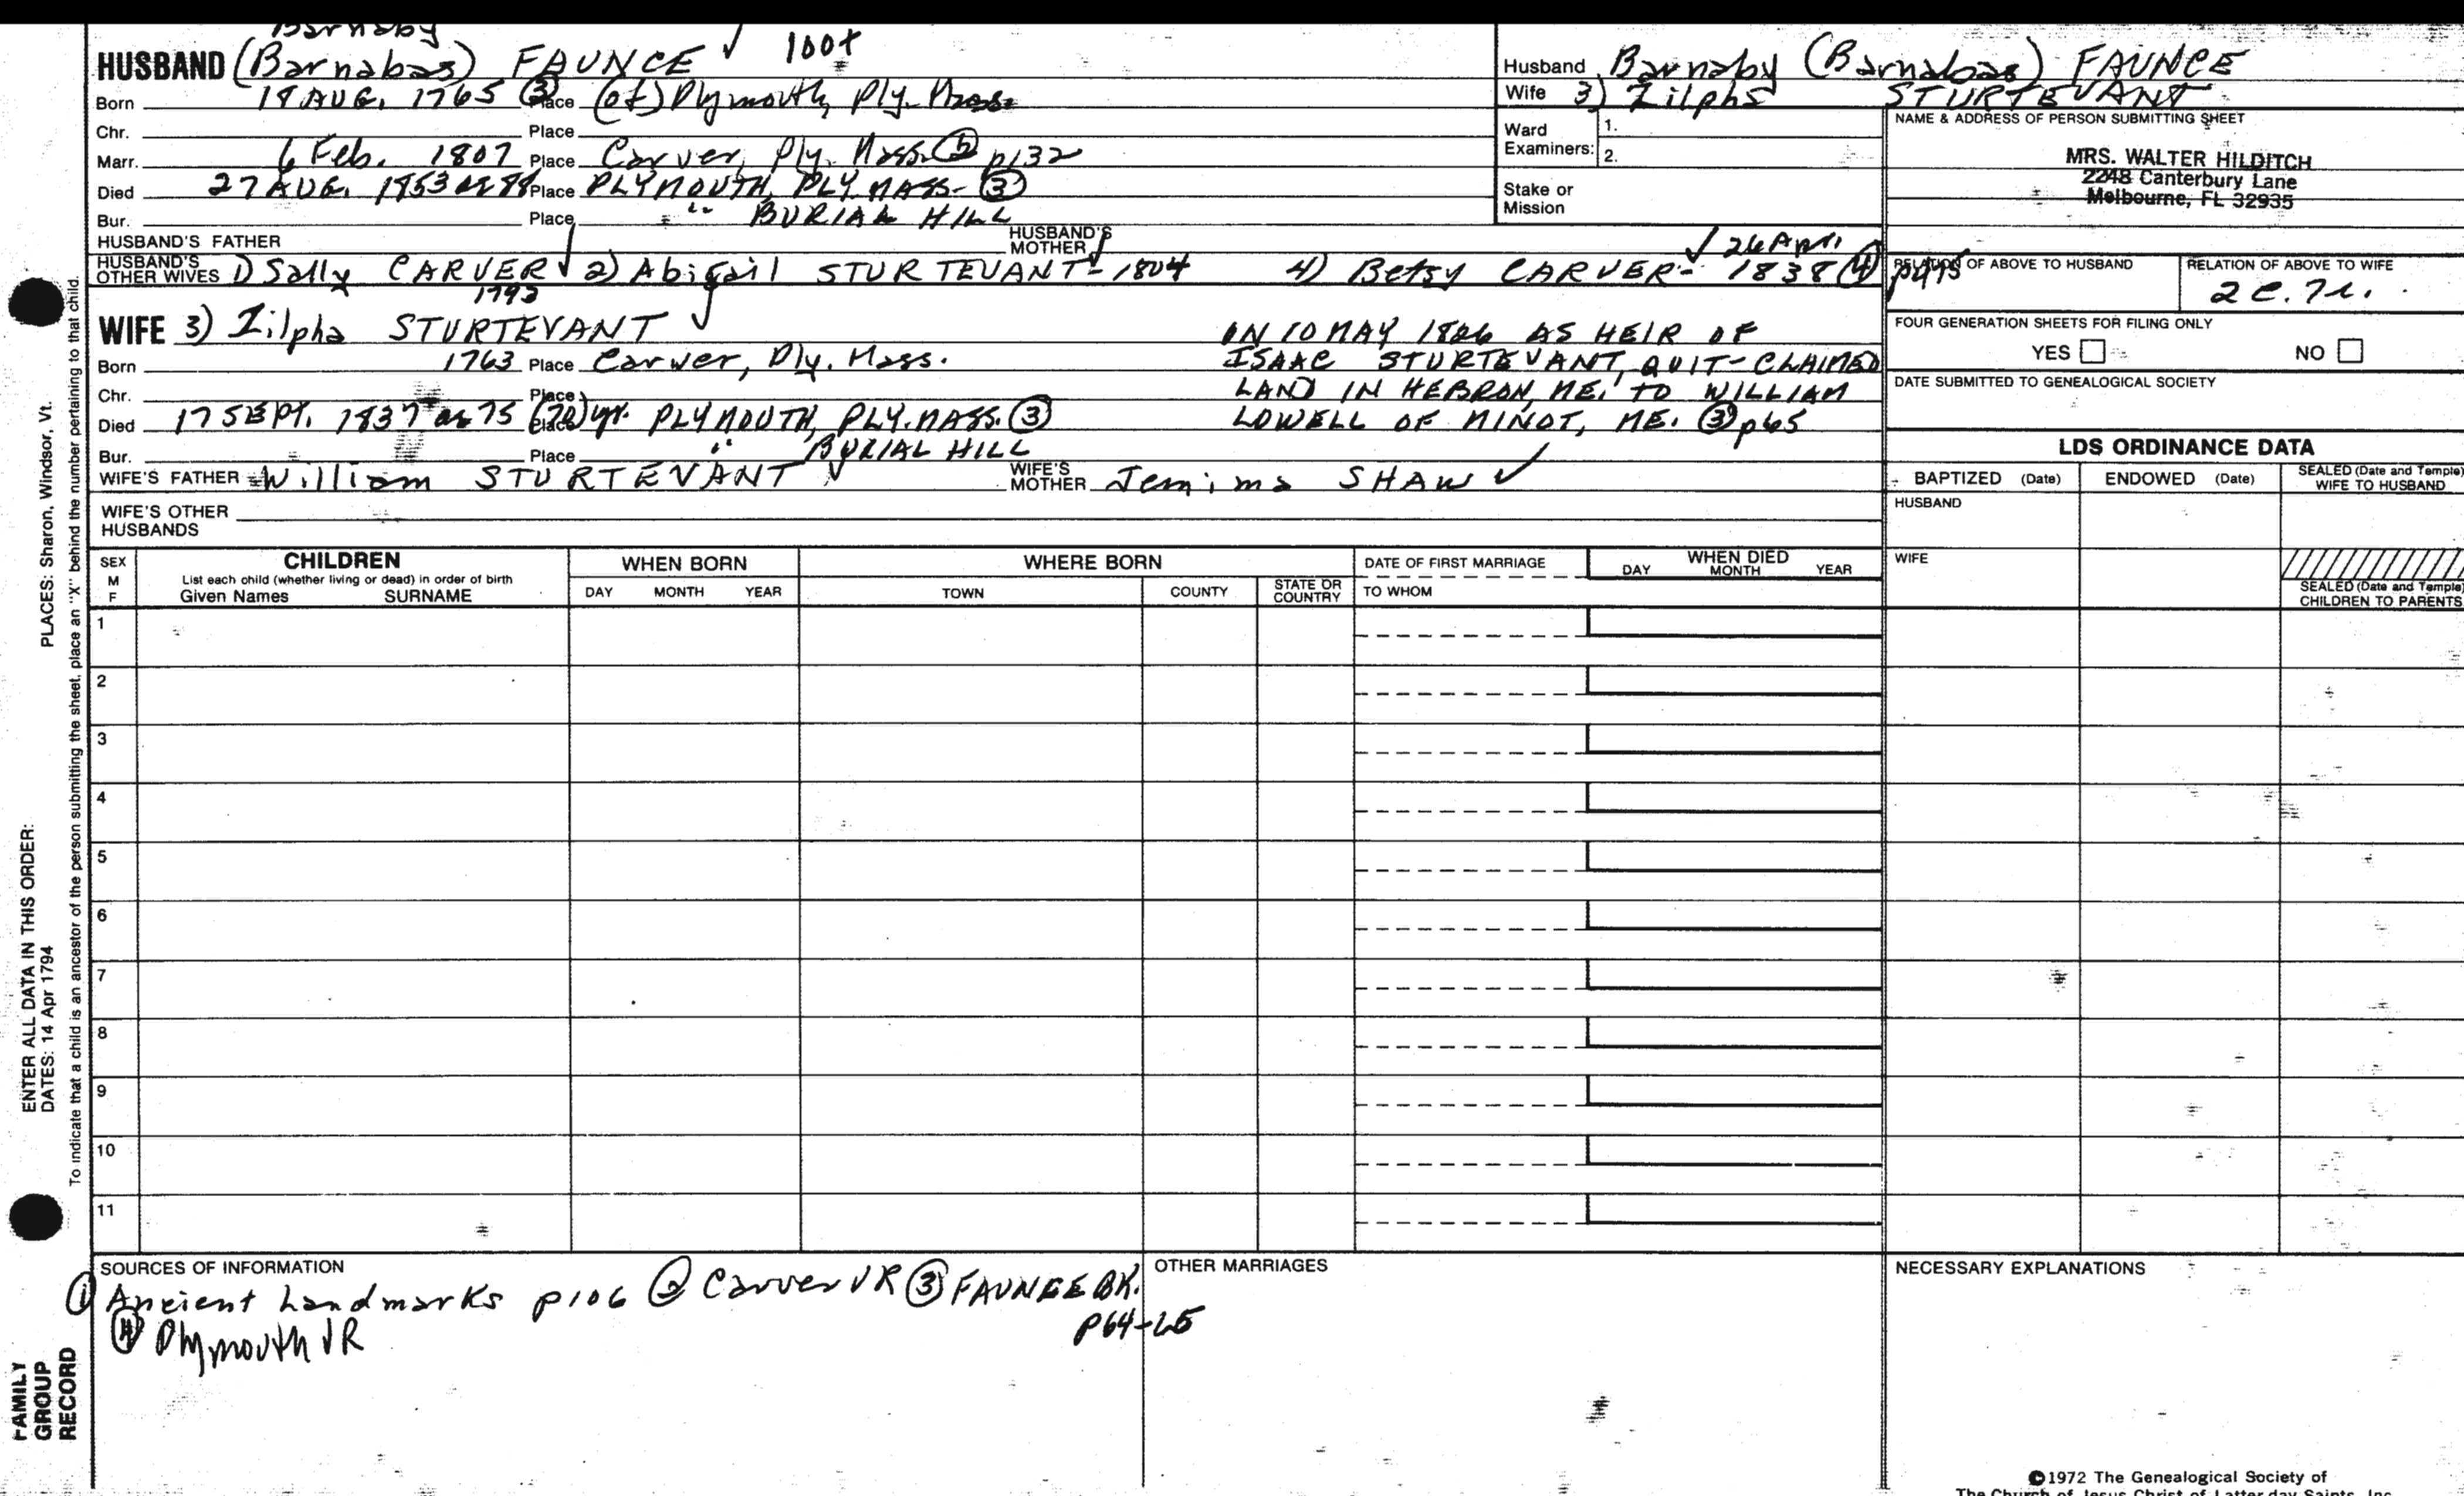 Barnaby
HUSBAND (Barnabas) FAUNCE √ 100+
Born 18 AUG. 1765 ③ Place (of) Plymouth, Ply. Mass.
Chr. Place
Marr. 6 Feb. 1807 Place Carver, Ply. Mass. p132
Died 27 AUG. 1853 ae 88 Place PLYMOUTH, PLY. MASS- ③
Bur. Place " BURIAL HILL
HUSBAND'S FATHER
HUSBAND'S MOTHER
HUSBAND'S OTHER WIVES 1) Sally CARVER √ 1792 2) Abigail STURTEVANT - 1804 √ 4) Betsy CARVER - √ 26 Apr. 1838 ④ p495
WIFE 3) Zilpha STURTEVANT √
Born 1763 Place Carver, Ply. Mass.
Chr. Place
Died 17 SEPT. 1837 ae 75 yr. Place PLYMOUTH, PLY. MASS. ③
Bur. Place " BURIAL HILL
ON 10 MAY 1826 AS HEIR OF
ISAAC STURTEVANT, QUIT-CLAIMED
LAND IN HEBRON, ME. TO WILLIAM
LOWELL OF MINOT, ME. ③ p65
WIFE'S FATHER William STURTEVANT √
WIFE'S MOTHER Jemima SHAW √
WIFE'S OTHER HUSBANDS
Husband Barnaby (Barnabas) FAUNCE
Wife 3) Zilpha STURTEVANT
Ward Examiners: 1.
2.
Stake or Mission
NAME & ADDRESS OF PERSON SUBMITTING SHEET
MRS. WALTER HILDITCH
2248 Canterbury Lane
Melbourne, FL 32935
RELATION OF ABOVE TO HUSBAND
RELATION OF ABOVE TO WIFE
2c.7r.
FOUR GENERATION SHEETS FOR FILING ONLY
YES □ NO □
DATE SUBMITTED TO GENEALOGICAL SOCIETY
LDS ORDINANCE DATA
BAPTIZED (Date) ENDOWED (Date) SEALED (Date and Temple) WIFE TO HUSBAND
HUSBAND
WIFE
SEALED (Date and Temple) CHILDREN TO PARENTS
SEX M F
CHILDREN
List each child (whether living or dead) in order of birth
Given Names SURNAME
WHEN BORN
DAY MONTH YEAR
WHERE BORN
TOWN COUNTY STATE OR COUNTRY
DATE OF FIRST MARRIAGE
TO WHOM
WHEN DIED
DAY MONTH YEAR
1
2
3
4
5
6
7
8
9
10
11
SOURCES OF INFORMATION
① Ancient Landmarks p106 ② Carver VR ③ FAUNCE BK. p64-65
④ Plymouth VR
OTHER MARRIAGES
NECESSARY EXPLANATIONS
©1972 The Genealogical Society of
The Church of Jesus Christ of Latter-day Saints, Inc.
PLACES: Sharon, Windsor, Vt.
ENTER ALL DATA IN THIS ORDER:
DATES: 14 Apr 1794
To indicate that a child is an ancestor of the person submitting the sheet, place an "X" behind the number pertaining to that child.
FAMILY
GROUP
RECORD